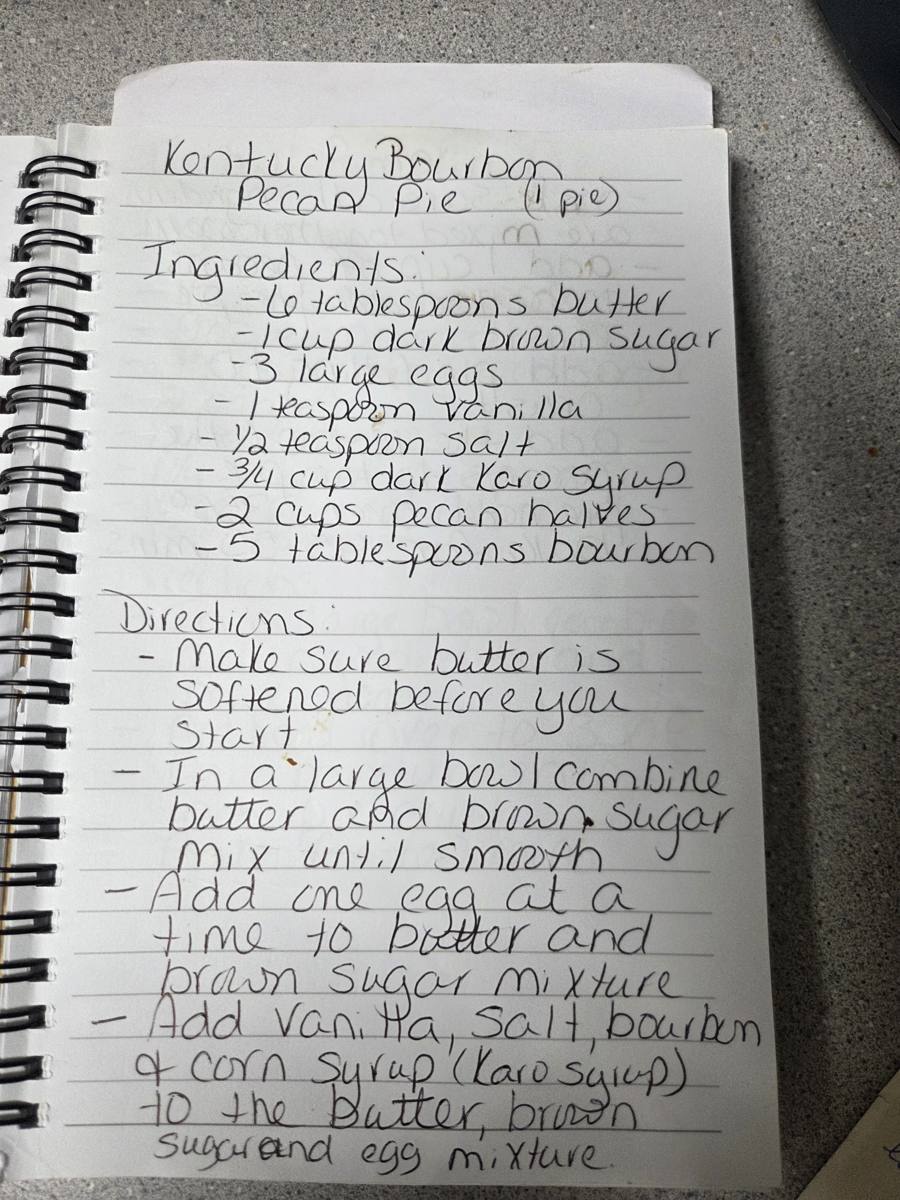 Kentucky Bourbon
Pecan Pie (1 pie)
Ingredients:
-6 tablespoons butter
-1 cup dark brown sugar
-3 large eggs
- 1 teaspoon vanilla
- 1/2 teaspoon salt
- 3/4 cup dark Karo Syrup
-2 cups pecan halves
-5 tablespoons bourbon
Directions:
- Make sure butter is
softened before you
start
- In a large bowl combine
butter and brown sugar
mix until smooth
- Add one egg at a
time to butter and
brown sugar mixture
- Add vanilla, salt, bourbon
& corn syrup (Karo syrup)
to the butter, brown
sugar and egg mixture.